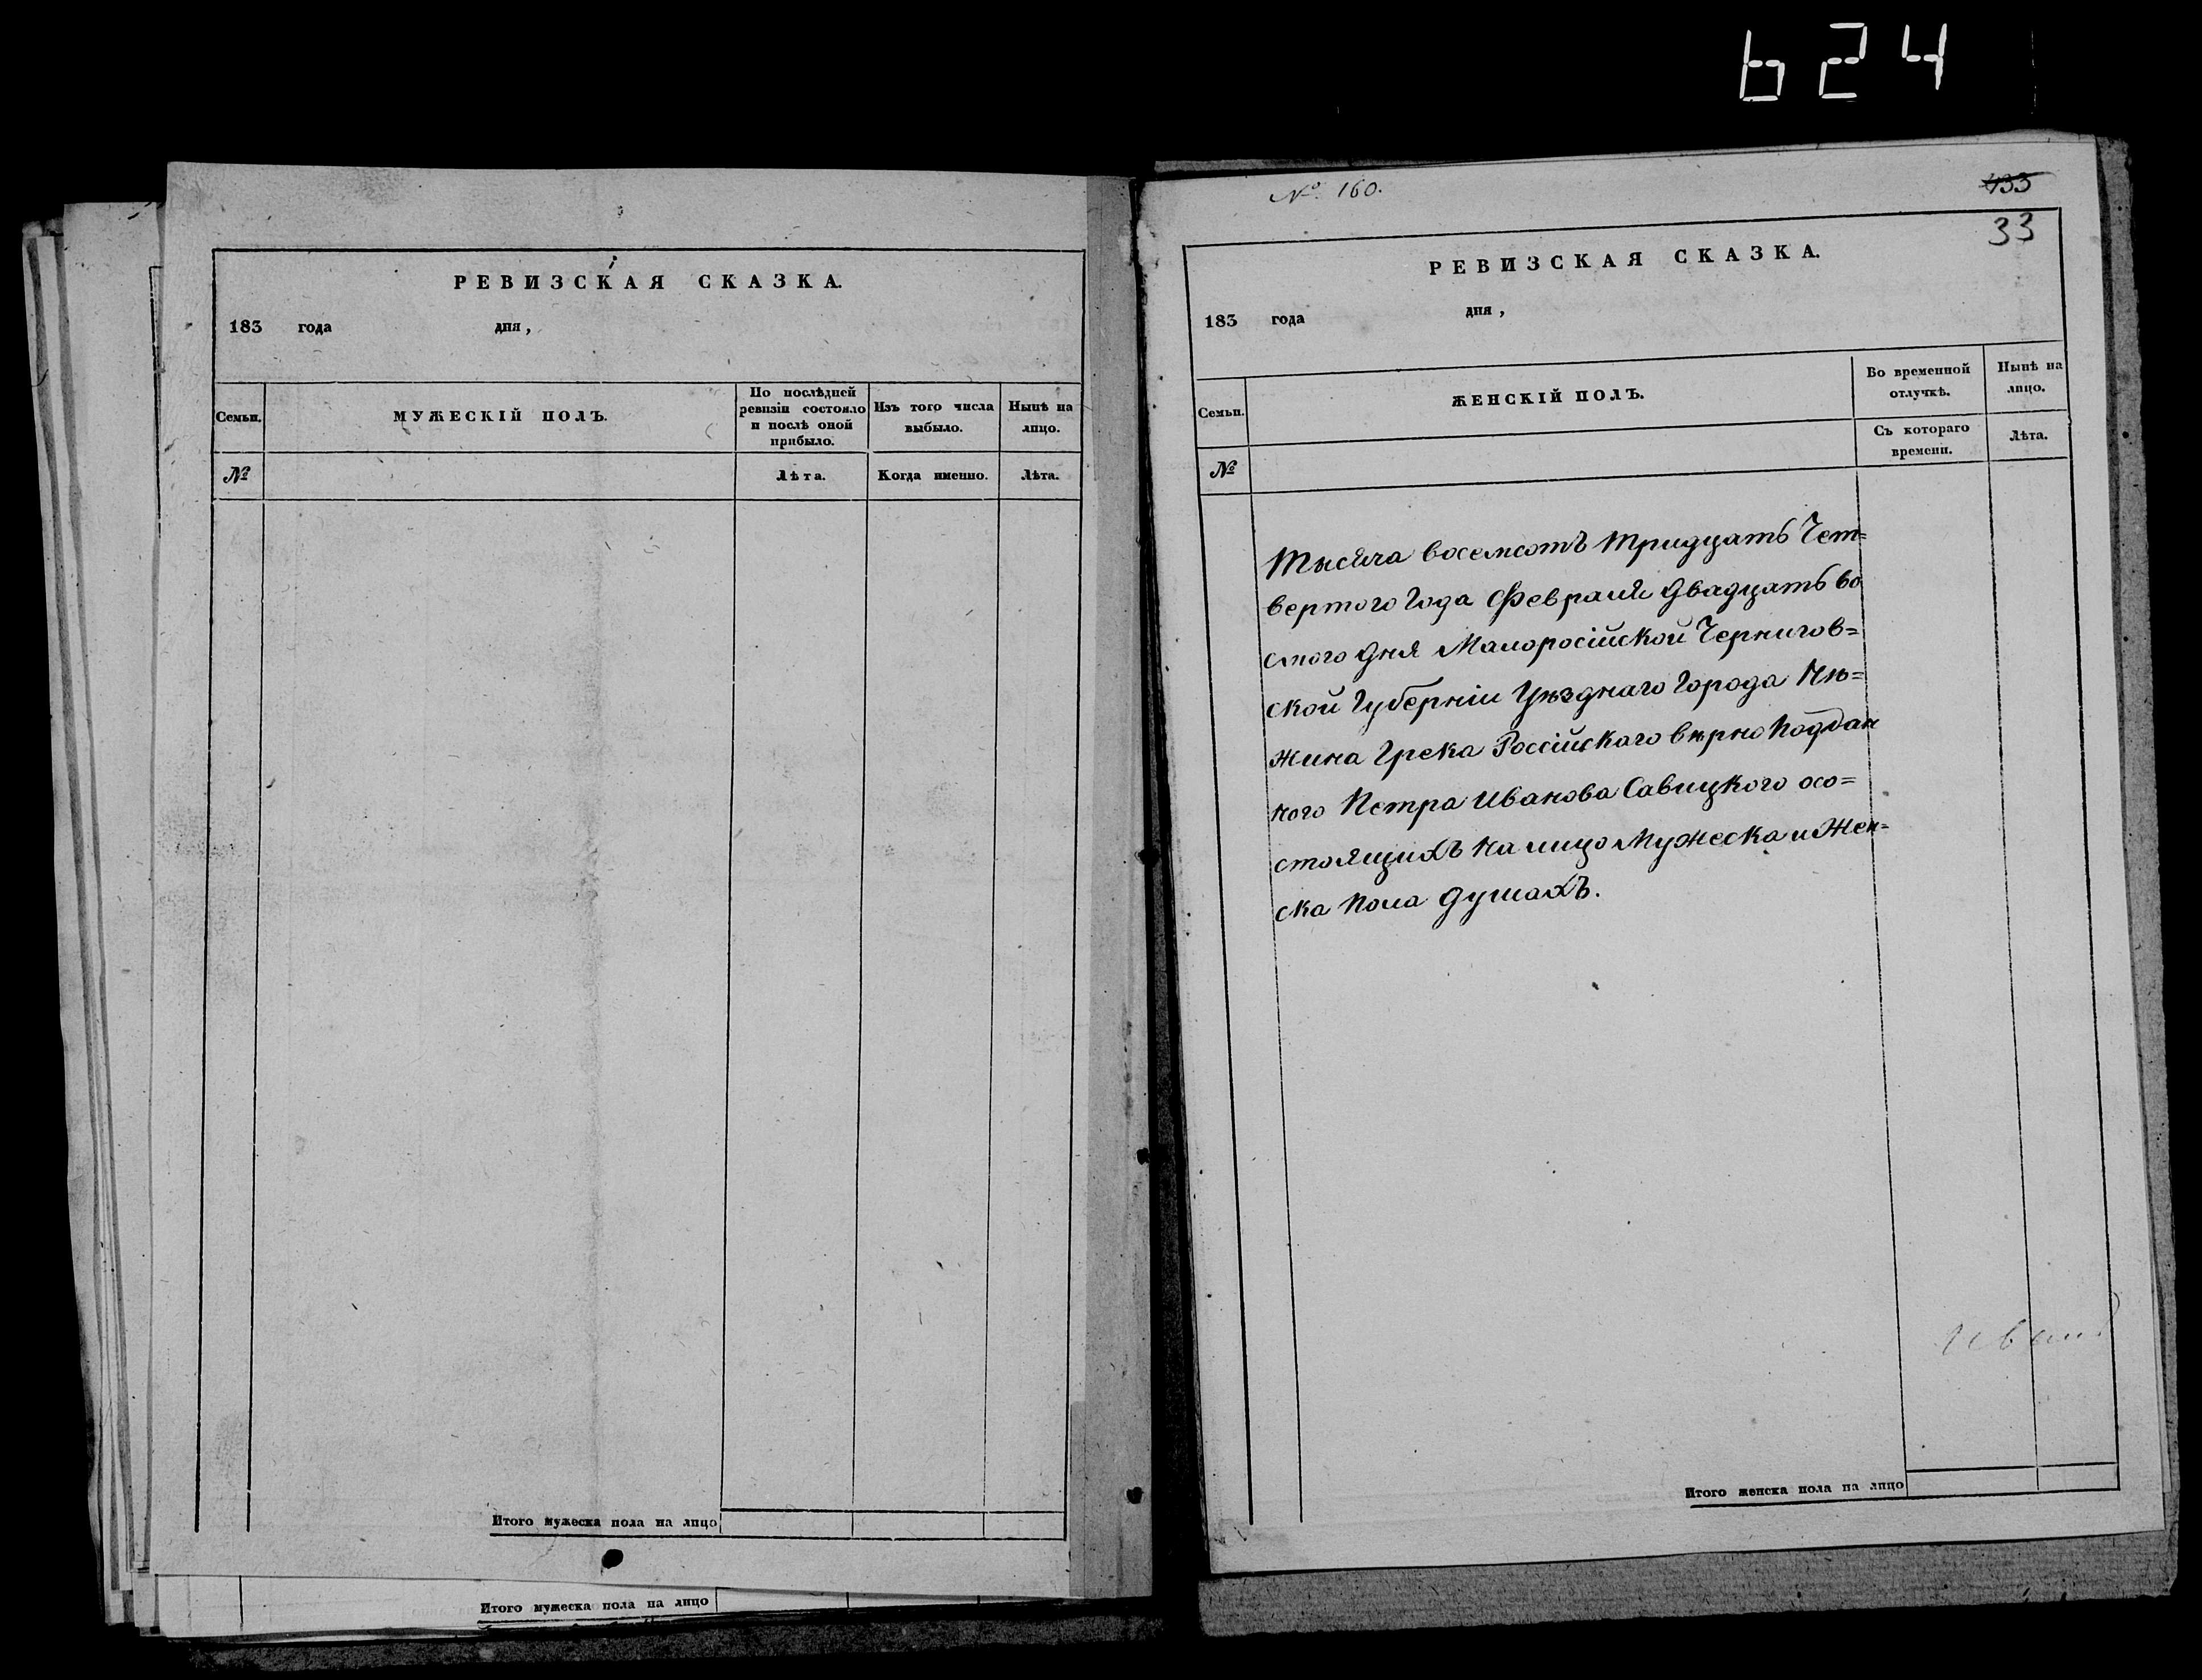 624
РЕВИЗСКАЯ СКАЗКА.
183 года дня,
Семьи.
МУЖЕСКІЙ ПОЛЪ.
По послѣдней
ревизіи состояло
и послѣ оной
прибыло.
Изъ того числа
выбыло.
Нынѣ на
лицо.
№
Лѣта.
Когда именно.
Лѣта.
Итого мужеска пола на лицо
Итого мужеска пола на лицо
№. 160.
433
33
РЕВИЗСКАЯ СКАЗКА.
183 года дня,
Семьи.
ЖЕНСКІЙ ПОЛЪ.
Во временной
отлучкѣ.
Нынѣ на
лицо.
№
Съ котораго
времени.
Лѣта.
Тысяча восемсотъ тридцать Чет=
вертого Года Февраля двадцать во
смого дня Малоросійской Чернигов=
ской Губерніи Уѣзднаго Города Нѣ=
жина Грека Россійскаго вѣрно подъдан
ного Петра Иванова Савицкого осо=
стоящихъ на лицо Мужеска и Жен=
ска пола душахъ.
Итого женска пола на лицо